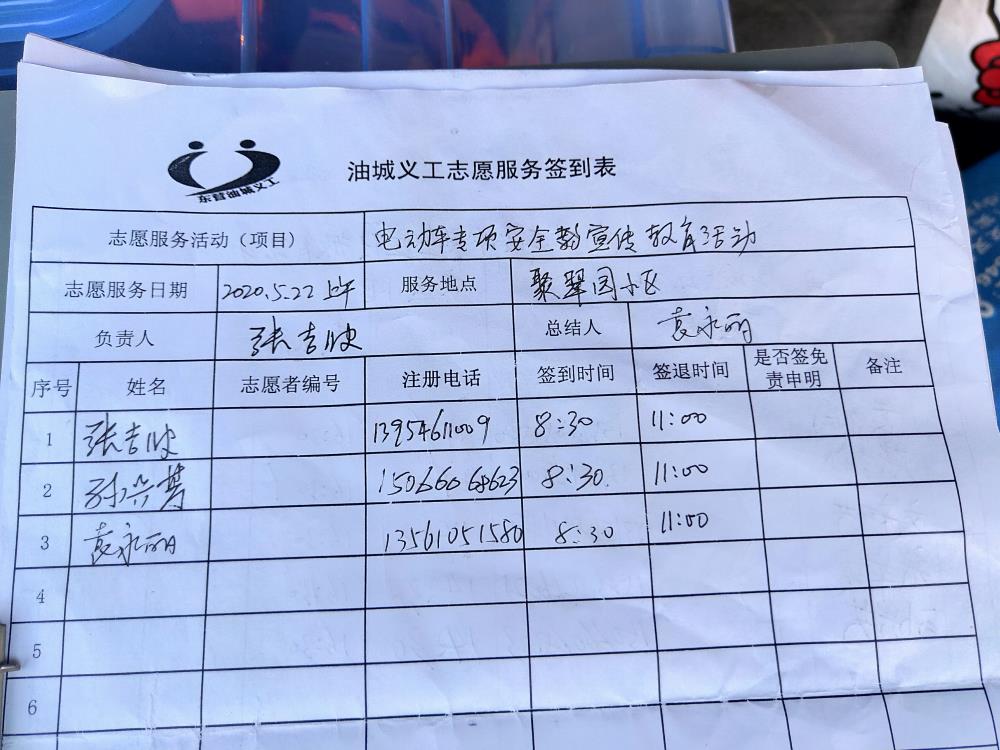 东营油城义工
油城义工志愿服务签到表
志愿服务活动（项目） 电动车专项安全教宣传教育活动
志愿服务日期 2020.5.22 上午 服务地点 聚翠园小区
负责人 张吉 总结人 袁永丽
序号 姓名 志愿者编号 注册电话 签到时间 签退时间 是否签免责申明 备注
1 张吉 13954611009 8:30 11:00
2 孙 15066068623 8:30 11:00
3 袁永丽 13561051580 8:30 11:00
4
5
6